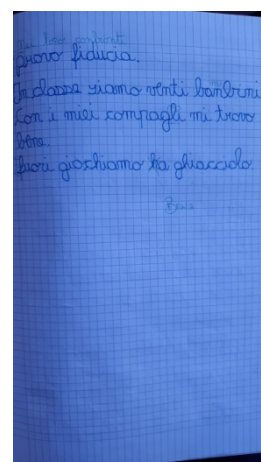 nei loro confronti
provo fiducia.
In classe siamo venti bambini
con i miei compagli mi trovo
bene.
fuori giochiamo ha ghiacciolo.
Bene